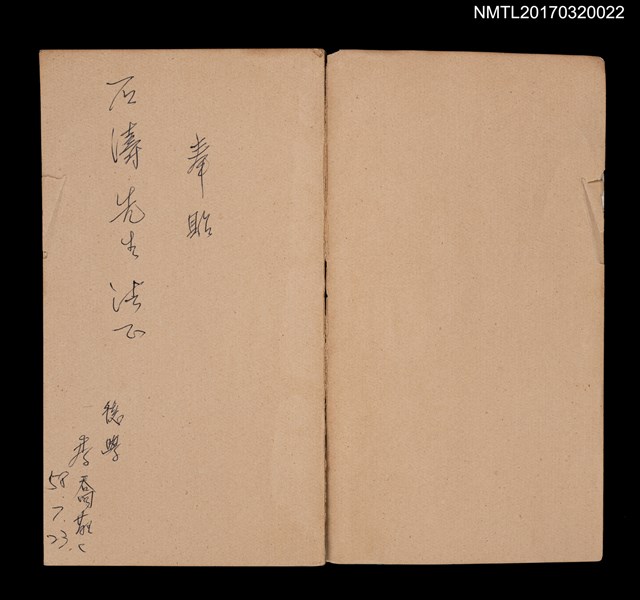 NMTL20170320022
奉貽
石濤先生法正
後學
李喬敬上
58.7.23.